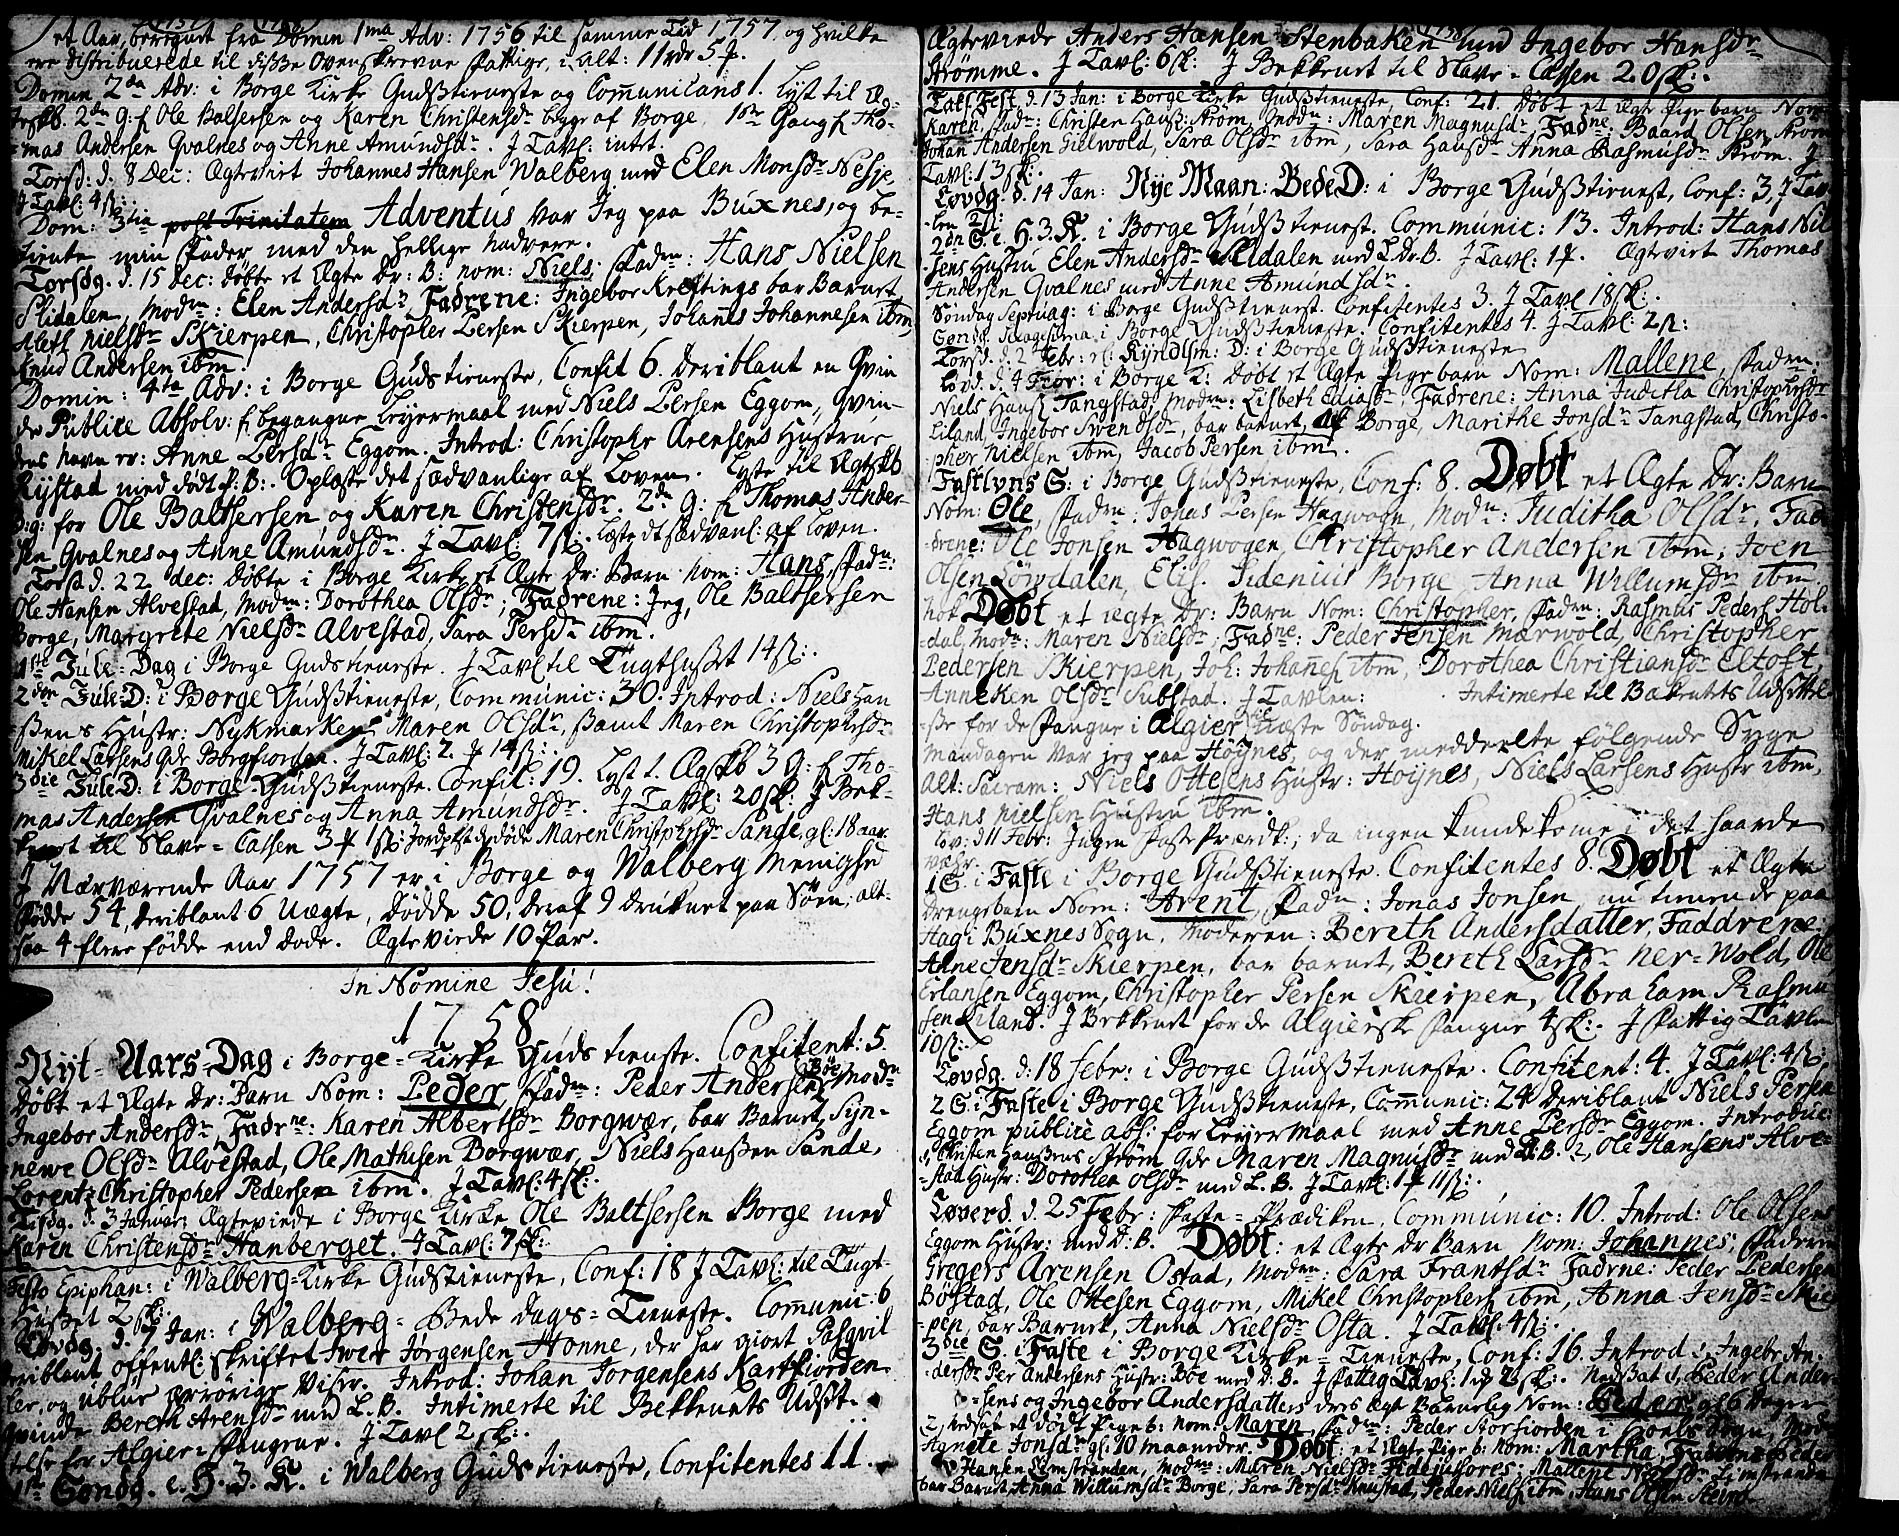 et Aar, beregnet fra Domin 1ma Adv: 1756 til samme Tid 1757. og hvilke
ere distribuerede til disse Ovenskrevne fattige, i alt: 11 rdr 5
Domin 2da Adv: i Borge Kirke Gudstieneste og Communicans 1. Lyst til Æ-
teskb. 2den G: f Ole Baltsersen og Karen Christensdr begge af Borge, 1ste Gang f Tho-
-mas Andersen Qvalnes og Anne Amundsdr. J Tavl: intet.
Torsd: d. 8 Dec: Ægteviet Johannes Hansen Walberg med Elen Monsdr Nesje
J Tavl: 4 sk:
Dom: 3tia post Trinitatem Adventus var Jeg paa Buxnes, og be-
tiente min Fader med den hellige nadvere.
Torsdg. d. 15 Dec: døbte et Ægte Dr: B: nom: Niels, Fadn: Hans Nielsen
Slidalen, Modn: Elen Andersdr, Fadrene: Ingebor Kreftings bar Barnet
Aleth Nielsdr Skierpen, Christopher Persen Skierpen, Johans Johannesen ibm,
Knud Andersen ibm.
Domin: 4ta Adv: i Borge Gudstieneste, Confit 6. Deriblant en Qvin
de Publice Absolv: f begangne Leyermaal med Niels Persen Eggom, Qvin-
dens navn er: Anne Persdr Eggom. Introd: Christophr Arensens Hustrue
Rystad med dødt P: B:. Oplæste det sædvanlige af Loven. Lyste til Ægtskb
3:g: for Ole Baltsersen og Karen Christensdr. 2dn G: f Thomas Ander
sen Qvalnes og Anne Amundsdr. J Tavl: 7 sk:. Læste dt sædvanl: af Loven.
Torsd d. 22 dec: døbte i Borge Kirke et Ægte Dr: Barn nom: Hans, Fadn:
Ole Hansen Alvestad, Modn: Dorothea Olsdr, Fadrene: Jeg, Ole Baltsersen
Borge, Margrete Nielsdr Alvestad, Sara Persdr ibm.
1ste Jule-Dag i Borge Gudstieneste. J Tavl til Tugthuset 14 sk:.
2den Jule-D: i Borge Gudstieneste, Communic: 30. Introd: Niels Han
sens Hustr: Nykmarken, Maren Olsdr, samt Maren Christophersdr
Mikel Larsens Qde Borgfiorden. J Tavl: 2. 14 sk:.
3die Jule D: i Borge Gudstieneste. Confit: 19. Lyst t. Ægskb 3 G: f Tho-
mas Andersen Qvalnes og Anna Amundsdr. J Tavl: 20 sk: J Bek-
kenet til Slave-Cassen 3 1 sk: Jordpst de døde Maren Christophrsdr Sande, gl: 18 aar.
J Nærværende Aar 1757 er i Borge og Walberg Menighed
fødde 54, deriblant 6 Uægte, Dødde 50, deraf 9 druknet paa Søen, alt-
saa 4 flere fødde end døde. Ægteviede 10 Par.
In Nomine Jesu!
1758
Nyt-Aars-Dag i Borge-Kirke Gudstieneste. Confitent: 5
Døbt et Ægte Dr: Barn Nom: Peder, Fadn: Peder Andersen Bøe, Modn
Ingebor Andersdr, Fadrne: Karen Albertsdr Borgwær, bar Barnet, Syn-
newe Olsdr Alvestad, Ole Mathisen Borgwær, Niels Hansen Sande,
Lorentz Christopher Pedersen ibm. J Tavl: 4 sk:.
Tisdg. d. 3 Januar: Ægteviede i Borge Kirke Ole Baltsersen Borge med
Karen Christensdr Hanberget. J Tavl: 7 sk:
Festo Epiphan: i Walberg-Kirke Gudstieneste, Conf: 18 J Tavl: til Tugt-
huset 2 sk:.
Løvdg. d. 7 Jan: i Walberg-Bede dags-Tieneste. Communic: 6
deriblant offentl: skriftet Iwer Jørgensen Honne, der har giort Pasqvil
ler, og ublue ærrørige Viser. Introd: Johan Jorgensens Kartfiorden
Qvinde Bereth Arensdr med L. B. Intimerte til Bekkenets Udsæt-
telse for Algier-Fangene. J Tavl 2 sk:.
1ste Søndg. e. H. 3. K. i Walberg Gudstieneste, Confitentes 11.
Ægteviede Anders Hansen Stenbaken med Ingebor Hansdr
Strømme. J Tavl: 6 sk: J Bekkenet til Slave-Cassen 20 sk:.
Takl Fest, d. 13 Jan: i Borge Kirke Gudstieneste, Conf: 21. Døbt et ægte Pige barn Nom
Karen, Fadn: Christen Hansen Strøm, Modn: Maren Magnusdr, Fadne: Baard Olsen Strøm
Johan Andersen Gielwold, Sara Olsdr ibm, Sara Hansdr, Anna Rasmusdr Strøm. J
Tavl: 13 sk:.
Løvdg. d. 14 Jan: Nye Maan: Bede D: i Borge Gudstienest, Conf: 3, J Tav-
len
2dn S. e. H. 3. K. i Borge Gudstienest. Communic: 13. Introd: Hans Nil
sens Hustru Elen Andersdr Slidalen med L Dr. B. J Tavl: 1. Ægteviet Thomas
Andersen Qvalnes med Anne Amundsdr.
Søndag Septuag: i Borge Gudstienest. Confitentes 3. J Tavl 18 sk:.
Sønds. Sexagesima i Borge Gudstieneste. Confitentes 4. J Tavl: 2 sk:
Torsd: d. 2 Febr: Kyndlsm: D: i Borge Gudstieneste
Løvd. d. 4 Febr: i Borge K: Døbt et Ægte Pige barn Nom: Mallene, Fadn:
Niels Hans. Tangstad, Modn: Lisbeth Ediasdr. Fadrene: Anna Juditha Christophersdr
Liland, Ingebor Swendsdr, bar barnet, af Borge, Marithe Jonsdr Tangstad, Christo-
pher Nielsen ibm, Jacob Persen ibm.
Fastlvns S: i Borge Gudstieneste, Conf: 8. Døbt et Ægte Dr: Barn
Nom: Ole, Fadn: Johas Persen Hagwogn, Modn: Juditha Olsdr. Fad
-drene: Ole Jonsen Hagwogen, Christopher Andersen ibm, Joen
Olsen Lørsdalen, Elis. Sidenius Borge, Anna Willumsdr ibm
nok Døbt et ægte Dr: Barn Nom: Christopher, Fadn: Rasmus Peders Hol-
-dal, Modn: Maren Nielsdr, Fadne: Peder Jensen Mærwold, Christopher
Pedersen Skierpen, Joh: Johannes ibm, Dorothea Christiansdr Eltoft,
Anneken Olsdr Substad. J Tavlen: Intimerte til Bekenets Udsettel-
-se for de Fangne i Algier til næste Søndag.
Mandagen var jeg paa Høynes, og der meddeelte følgende Syge
Alt: Sacram: Niels Ottesens Hustr: Høynes, Niels Larsens Hustr ibm,
Hans Nielsen Hustru ibm.
Løv: d 11 Febr: Ingen Faste Prædk:, da ingen kunde kome i det haarde
Vehr.
1 S. i Faste i Borge Gudstieneste. Confitentes 8. Døbt et Ægte
Drengebarn Nom: Arent, Fadn: Jonas Jonsen, nu tienende paa
Hag i Buxnes Sogn, Moderen: Bereth Andersdatter, Faddrene:
Anne Jensdr Skierpen, bar barnet, Bereth Larsdr Ner-Wold, Ole
Erlansen Eggom, Christopher Persen Skierpen, Abraham Rasmu
sen Liland. J Bekkenet for de Algierske Fangne 4 sk:. J Fattig Tavlen
10 sk:.
Løvdg. d: 18 Febr: i Borge Gudstieneste. Confitent: 4. J Tavl: 4 sk:
2 S. i Faste i Borge Gudstieneste, Communic: 24 deriblant Niels Persen
Eggom publice abs: for Leyermaal med Anne Persdr Eggom. Introduc:
1, Christen Hansens Strøm Qde Maren Magnusdr med P. B. 2, Ole Hansens Alve-
-stad Hustr: Dorothea Olsdr med L. B. J Tavl: 1 11 sk:.
Løverd. d. 25 Febr: Faste-Prædiken, Communic: 10. Introd: Ole Olsens
Eggom Hustr: med D: B. Døbt: et Ægte Dr Barn Nom: Johannes, Fadern
Gregers Arensen Ostad, Modn: Sara Frantsdr Fadrne: Peder Pedersen
Bøstad, Ole Ottesen Eggom, Mikel Christophers ibm, Anna Jensdr Skier
-pen, bar Barnet, Anna Nielsdr Osta. J Tavl: 4 sk:.
3die S. i Faste i Borge Kirke-Tieneste, Conf: 16. Introd: Ingebr An-
-dersdr Per Andersens Hustr: Bøe med D: B. J Fattig Tavl: 1 2 sk:. Nedsat 1, Peder Ander-
-sens og Ingebor Andersdatters deres Ægt Barnelig Nom: Peder, gl 6 Dager
2, nedsat et dødt Pigeb: nom: Maren, Fadn: Peder Storfiorden i Hoels Sogn, Modn
Agnete Jonsdr gl: 10 maaneder. Døbt: et Ægte Pige b: nom: Martha, Faderen: Peder
Hansen Limstranden, Modn: Maren Nielsdr. Fidejussores: Mallene Nielsdr Limstranden
bar Barnet, Anna Willumsdr Borge, Sara Persdr Knustad, Peder Niels. ibm, Hans Olsen Steen